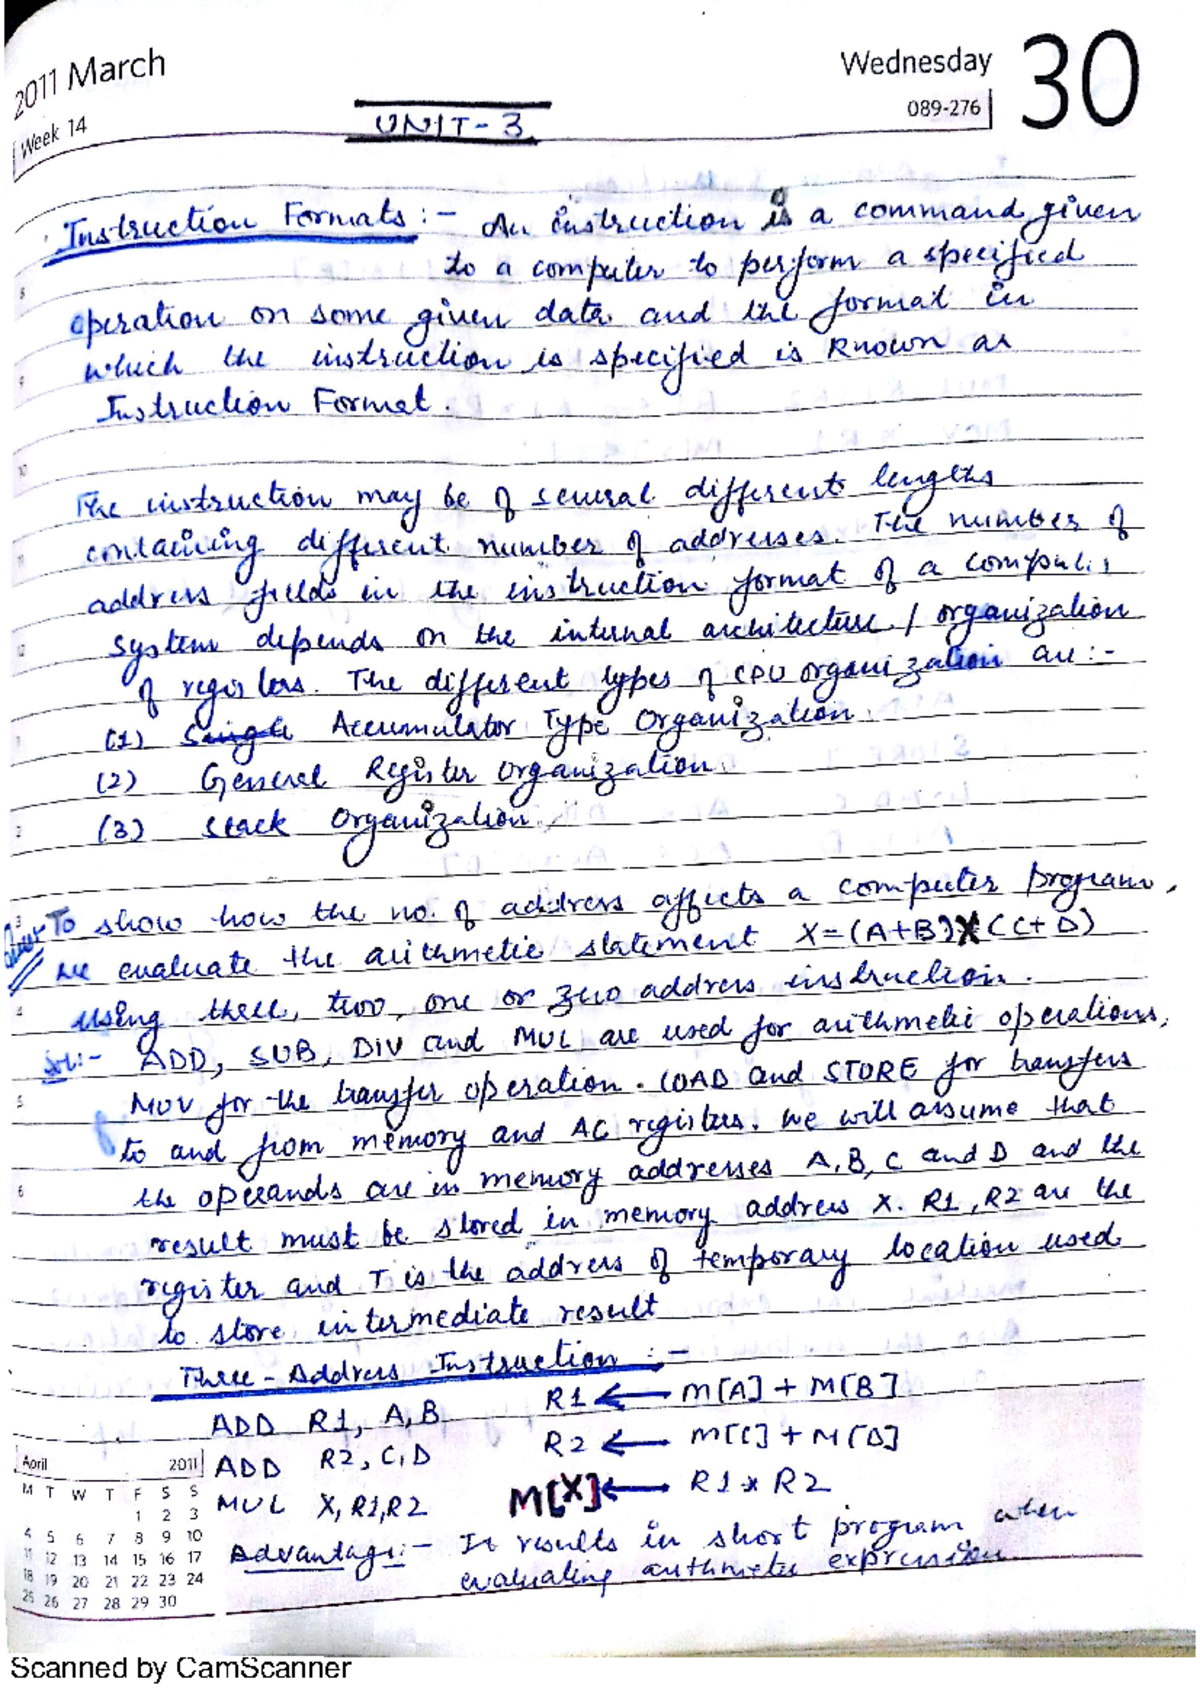 2011 March
Week 14
Wednesday 30
089-276
UNIT-3
Instruction Formats :- An instruction is a command given
to a computer to perform a specified
operation on some given data and the format in
which the instruction is specified is known as
Instruction Format.
The instruction may be of several different lengths
containing different number of addresses. The number of
address fields in the instruction format of a computer
system depends on the internal architecture / organization
of registers. The different types of CPU organization are :-
(1) Single Accumulator Type Organization.
(2) General Register Organization.
(3) Stack Organization.
To show how the no. of address affects a computer program,
we evaluate the arithmetic statement X=(A+B)X(C+D)
using three, two, one or zero address instruction.
Sol:- ADD, SUB, DIV and MUL are used for arithmetic operations,
MOV for the transfer operation. LOAD and STORE for transfers
to and from memory and AC registers. we will assume that
the operands are in memory addresses A, B, C and D and the
result must be stored in memory address X. R1, R2 are the
register and T is the address of temporary location used
to store intermediate result
Three-Address Instruction :-
ADD R1, A, B R1 ← M[A] + M[B]
ADD R2, C, D R2 ← M[C] + M[D]
MUL X, R1, R2 M[X] ← R1 * R2
Advantage:- It results in short program when
evaluating arithmetic expression.
April 2011
M T W T F S S
1 2 3
4 5 6 7 8 9 10
11 12 13 14 15 16 17
18 19 20 21 22 23 24
25 26 27 28 29 30
Scanned by CamScanner